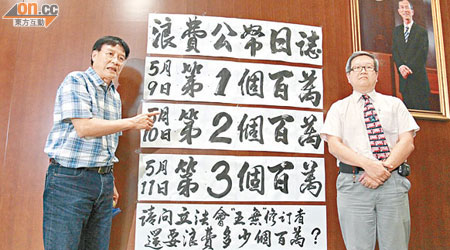 on.cc
東方互動
浪費公帑日誌
5月9日第1個百萬
5月10日第2個百萬
5月11日第3個百萬
請問立法會"五無"修訂者
還要浪費多少個百萬?